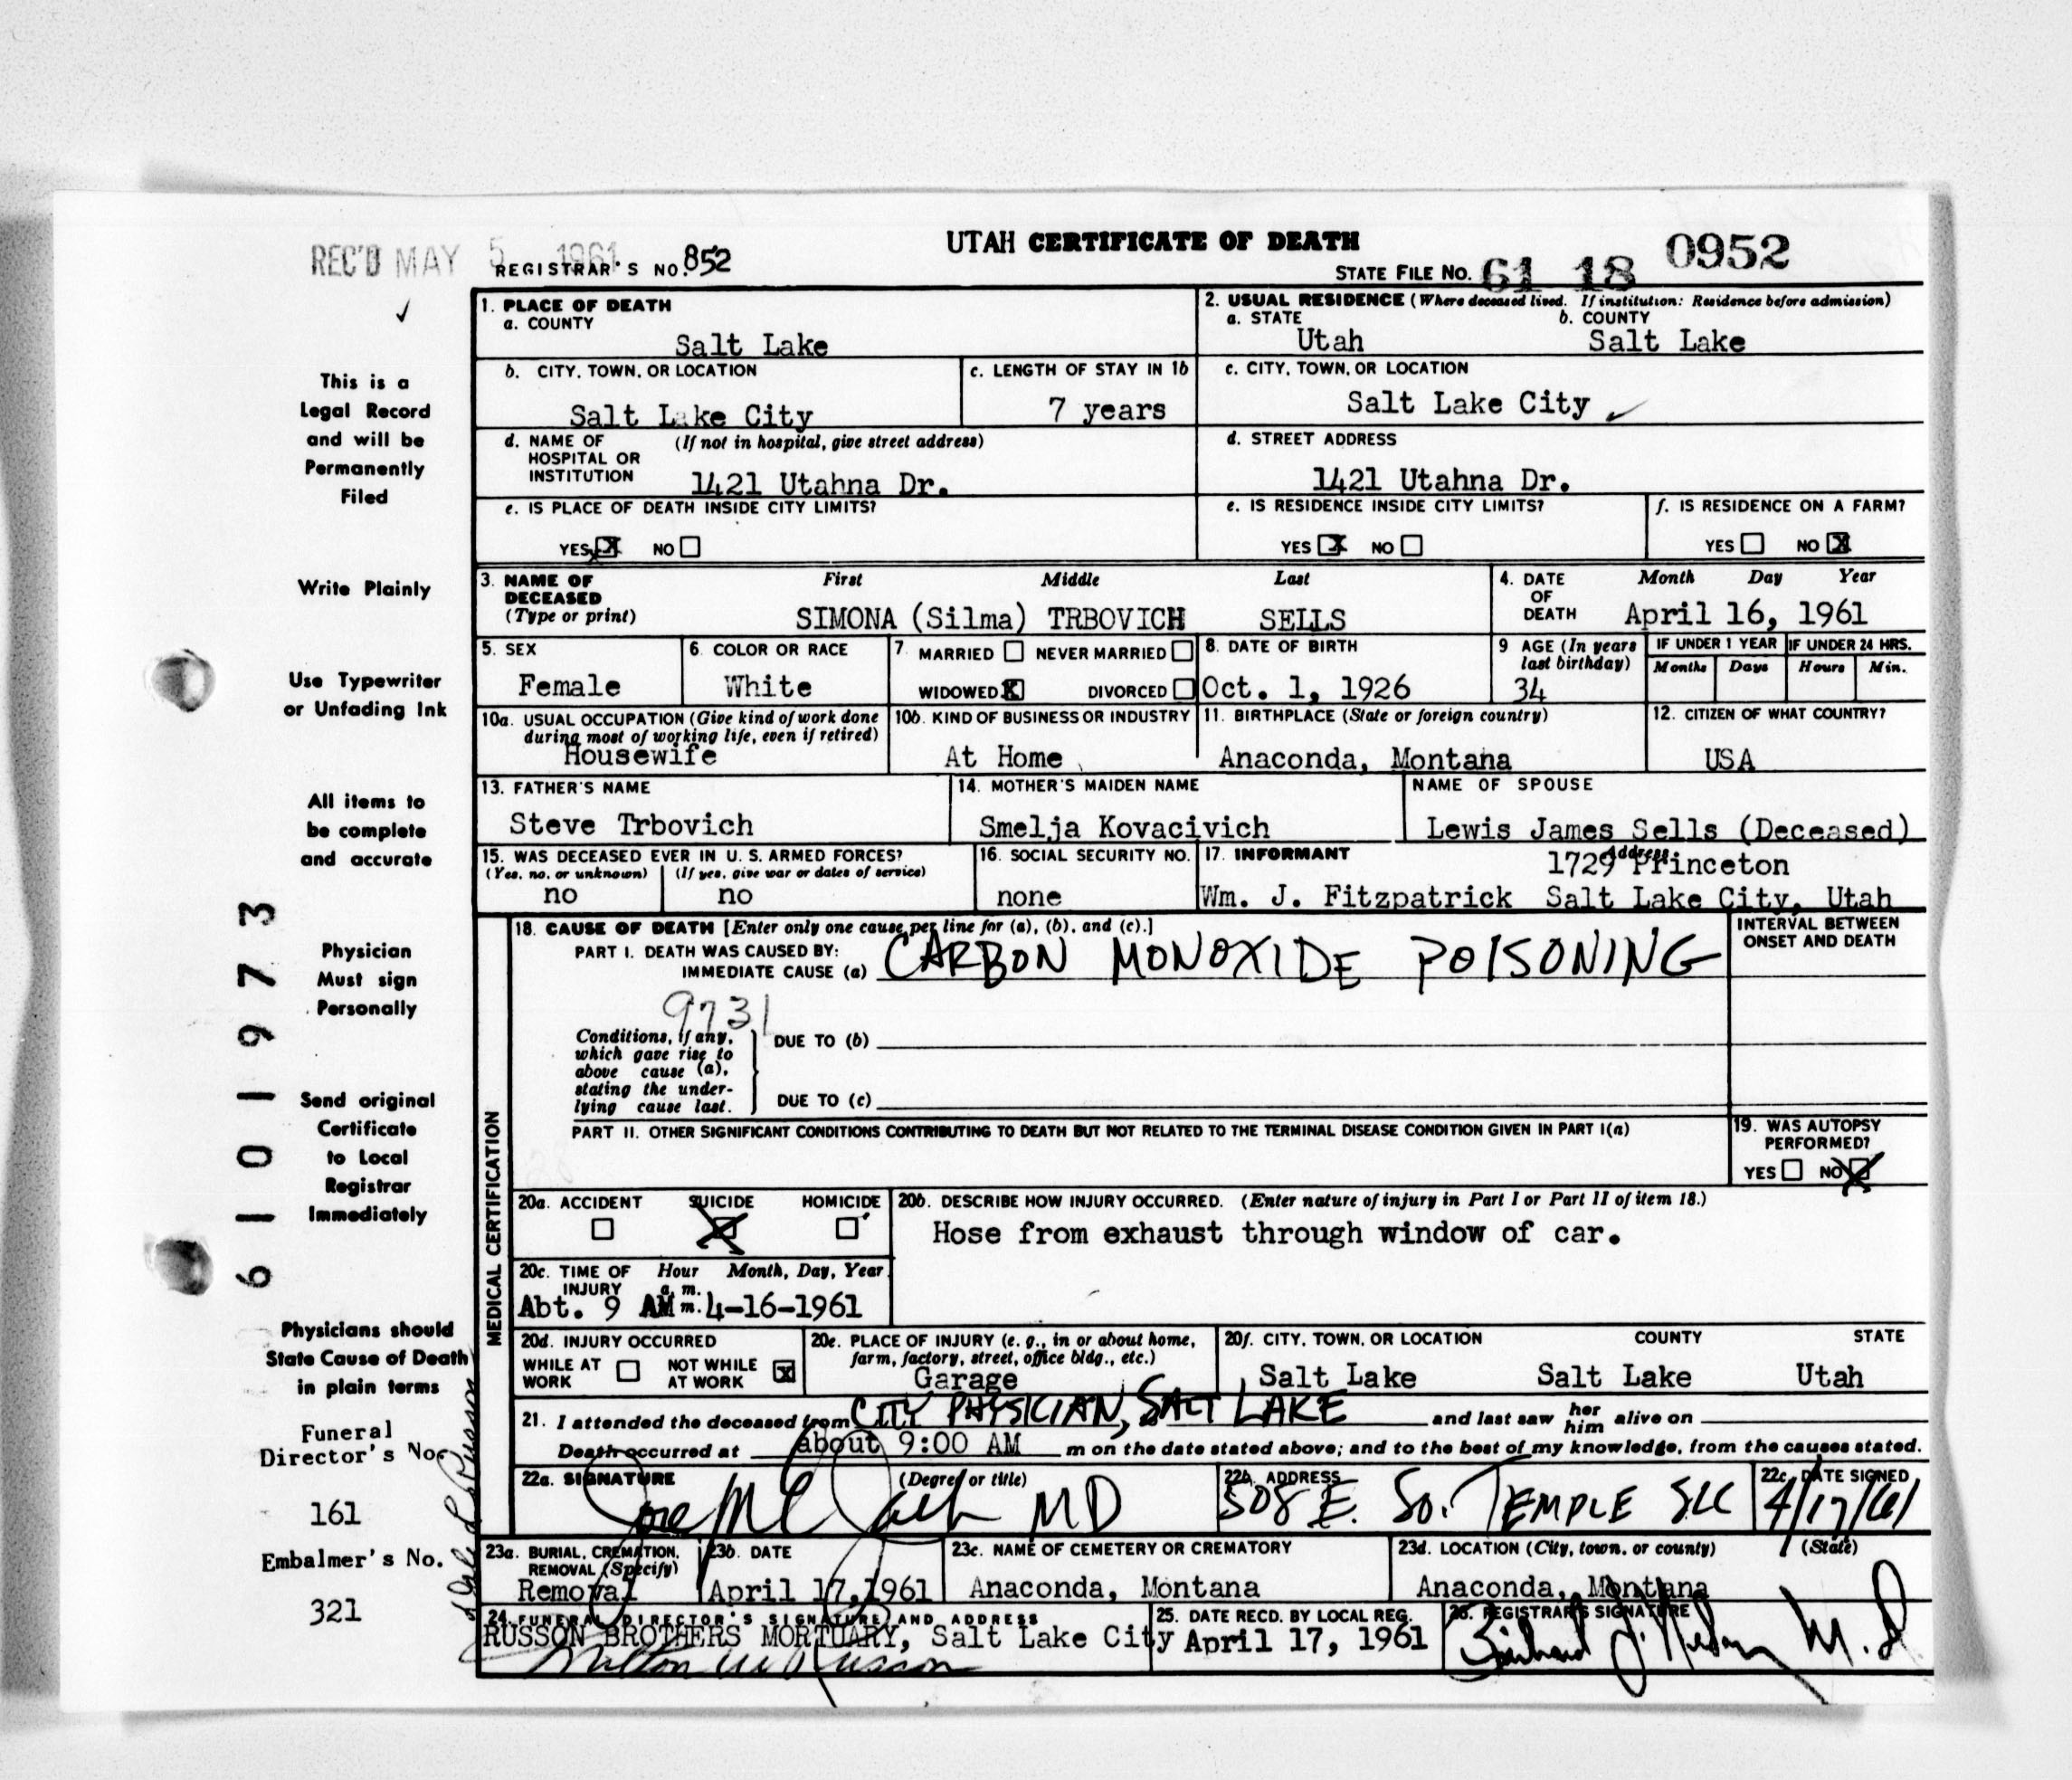 REC'D MAY 5 1961
REGISTRAR'S NO. 852
UTAH CERTIFICATE OF DEATH
STATE FILE NO. 61 18 0952
1. PLACE OF DEATH
a. COUNTY
Salt Lake
2. USUAL RESIDENCE (Where deceased lived. If institution: Residence before admission)
a. STATE b. COUNTY
Utah Salt Lake
b. CITY, TOWN, OR LOCATION
Salt Lake City
c. LENGTH OF STAY IN 1b
7 years
c. CITY, TOWN, OR LOCATION
Salt Lake City
d. NAME OF HOSPITAL OR INSTITUTION (If not in hospital, give street address)
1421 Utahna Dr.
d. STREET ADDRESS
1421 Utahna Dr.
e. IS PLACE OF DEATH INSIDE CITY LIMITS?
YES X NO
e. IS RESIDENCE INSIDE CITY LIMITS?
YES X NO
f. IS RESIDENCE ON A FARM?
YES NO X
3. NAME OF DECEASED (Type or print)
First Middle Last
SIMONA (Silma) TRBOVICH SELLS
4. DATE OF DEATH
Month Day Year
April 16, 1961
5. SEX
Female
6. COLOR OR RACE
White
7. MARRIED NEVER MARRIED
WIDOWED X DIVORCED
8. DATE OF BIRTH
Oct. 1, 1926
9 AGE (In years last birthday)
34
IF UNDER 1 YEAR IF UNDER 24 HRS.
Months Days Hours Min.
10a. USUAL OCCUPATION (Give kind of work done during most of working life, even if retired)
Housewife
10b. KIND OF BUSINESS OR INDUSTRY
At Home
11. BIRTHPLACE (State or foreign country)
Anaconda, Montana
12. CITIZEN OF WHAT COUNTRY?
USA
13. FATHER'S NAME
Steve Trbovich
14. MOTHER'S MAIDEN NAME
Smelja Kovacivich
NAME OF SPOUSE
Lewis James Sells (Deceased)
15. WAS DECEASED EVER IN U. S. ARMED FORCES?
(Yes, no, or unknown) (If yes, give war or dates of service)
no no
16. SOCIAL SECURITY NO.
none
17. INFORMANT Address
1729 Princeton
Wm. J. Fitzpatrick Salt Lake City, Utah
18. CAUSE OF DEATH [Enter only one cause per line for (a), (b), and (c).]
PART I. DEATH WAS CAUSED BY:
IMMEDIATE CAUSE (a) CARBON MONOXIDE POISONING
INTERVAL BETWEEN ONSET AND DEATH
9731
Conditions, if any, which gave rise to above cause (a), stating the underlying cause last.
DUE TO (b)
DUE TO (c)
PART II. OTHER SIGNIFICANT CONDITIONS CONTRIBUTING TO DEATH BUT NOT RELATED TO THE TERMINAL DISEASE CONDITION GIVEN IN PART I(a)
19. WAS AUTOPSY PERFORMED?
YES NO X
MEDICAL CERTIFICATION
20a. ACCIDENT SUICIDE HOMICIDE
X
20b. DESCRIBE HOW INJURY OCCURRED. (Enter nature of injury in Part I or Part II of item 18.)
Hose from exhaust through window of car.
20c. TIME OF INJURY Hour Month, Day, Year
a. m.
Abt. 9 AM m. 4-16-1961
20d. INJURY OCCURRED
WHILE AT WORK NOT WHILE AT WORK X
20e. PLACE OF INJURY (e. g., in or about home, farm, factory, street, office bldg., etc.)
Garage
20f. CITY, TOWN, OR LOCATION COUNTY STATE
Salt Lake Salt Lake Utah
21. I attended the deceased from CITY PHYSICIAN, SALT LAKE and last saw her him alive on
Death occurred at about 9:00 AM m on the date stated above; and to the best of my knowledge, from the causes stated.
22a. SIGNATURE (Degree or title)
MD
22b. ADDRESS
508 E. So. TEMPLE SLC
22c. DATE SIGNED
4/17/61
23a. BURIAL, CREMATION, REMOVAL (Specify)
Removal
23b. DATE
April 17, 1961
23c. NAME OF CEMETERY OR CREMATORY
Anaconda, Montana
23d. LOCATION (City, town, or county) (State)
Anaconda, Montana
24. FUNERAL DIRECTOR'S SIGNATURE AND ADDRESS
RUSSON BROTHERS MORTUARY, Salt Lake City
25. DATE RECD. BY LOCAL REG.
April 17, 1961
26. REGISTRAR'S SIGNATURE
M.D.
This is a
Legal Record
and will be
Permanently
Filed
Write Plainly
Use Typewriter
or Unfading Ink
All items to
be complete
and accurate
Physician
Must sign
Personally
Send original
Certificate
to Local
Registrar
Immediately
Physicians should
State Cause of Death
in plain terms
Funeral
Director's No.
161
Embalmer's No.
321
6 1 0 1 9 7 3